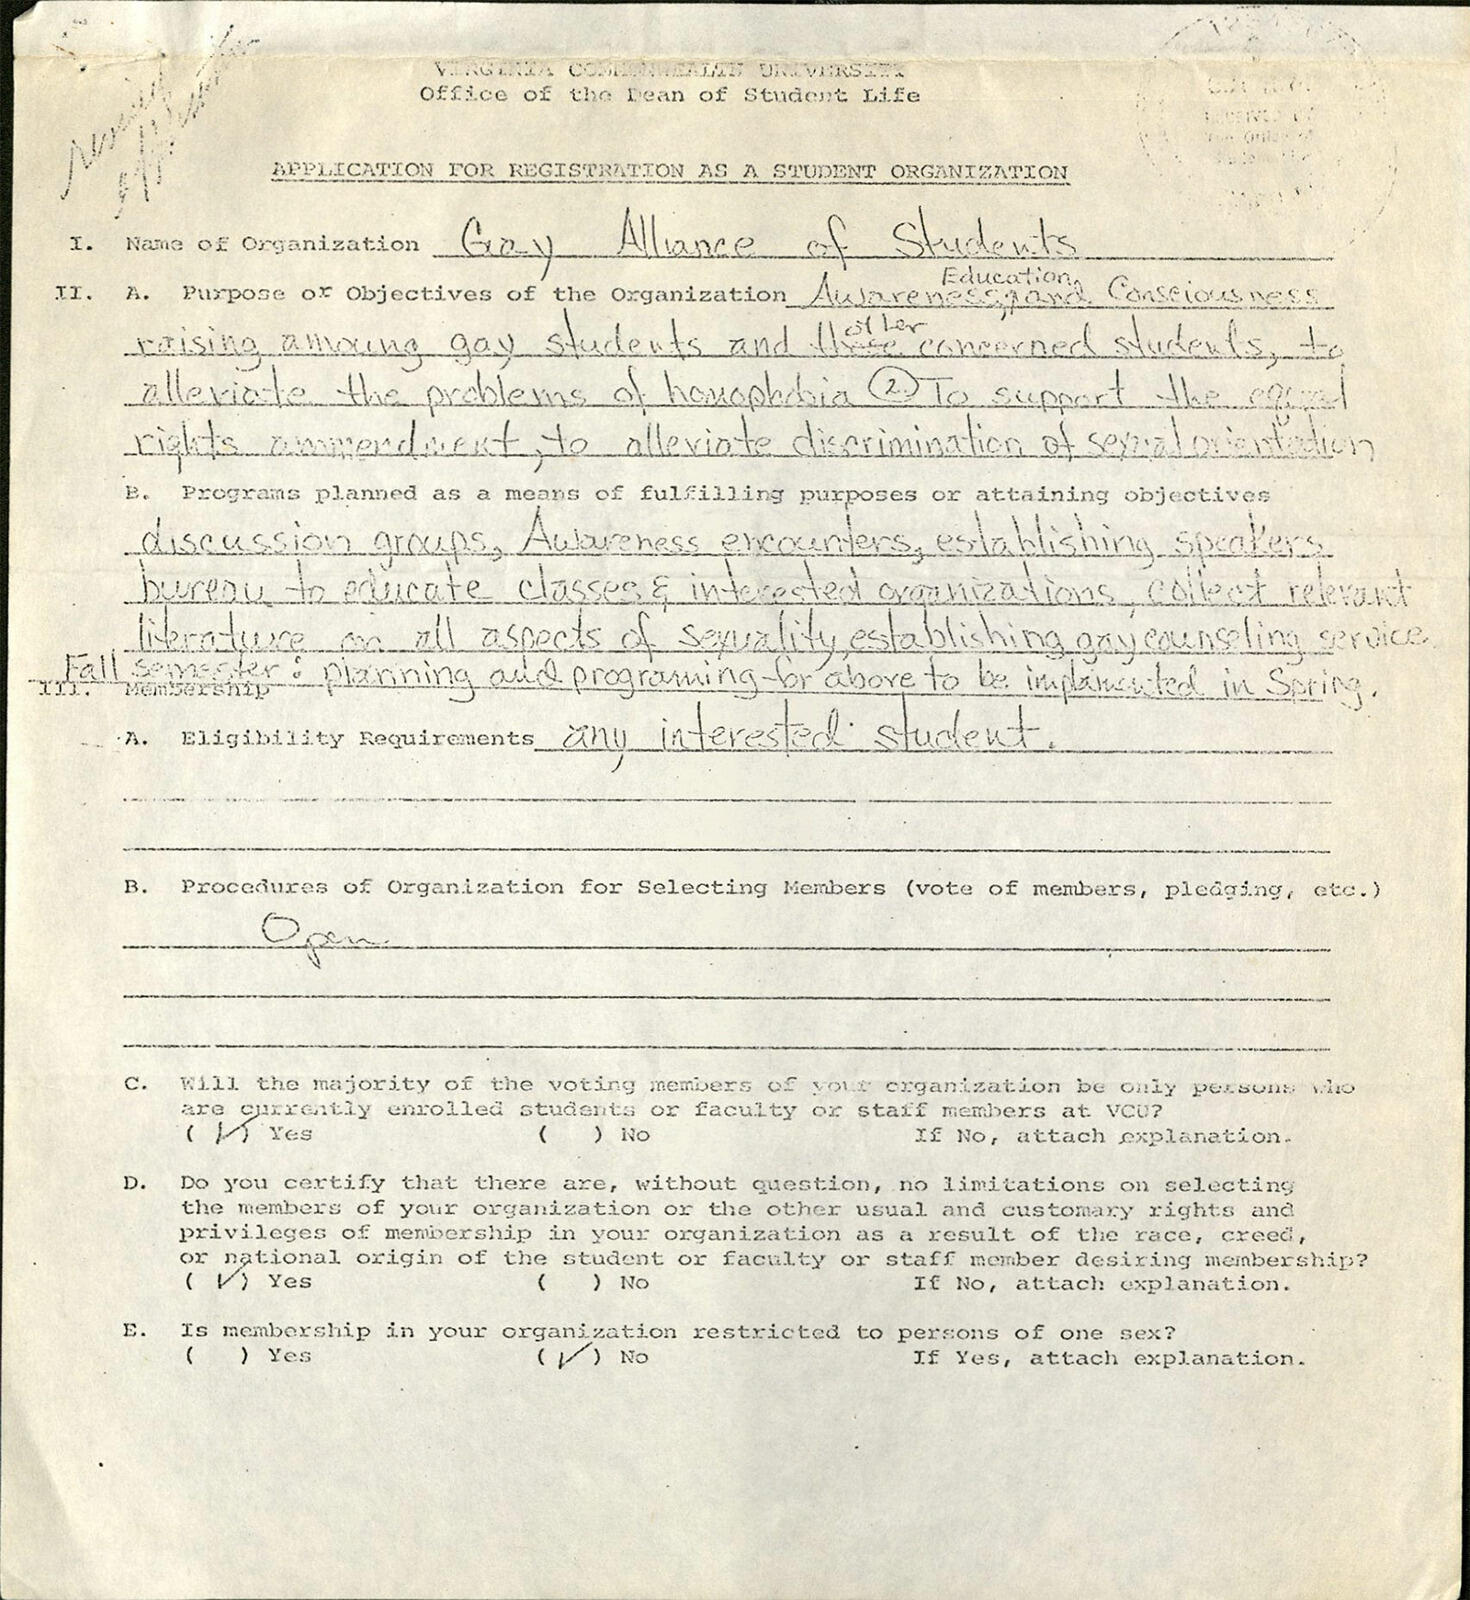 VIRGINIA COMMONWEALTH UNIVERSITY
Office of the Dean of Student Life
APPLICATION FOR REGISTRATION AS A STUDENT ORGANIZATION
I. Name of Organization Gay Alliance of Students
Education,
II. A. Purpose or Objectives of the Organization Awareness, and Consciousness
other
raising amoung gay students and these concerned students, to
alleviate the problems of homophobia (2) To support the equal
rights ammendment, to alleviate discrimination of sexual orientation
B. Programs planned as a means of fulfilling purposes or attaining objectives
discussion groups, Awareness encounters, establishing speakers
bureau to educate classes & interested organizations, collect relevant
literature on all aspects of sexuality, establishing gay counseling service
Fall semester: planning and programing for above to be implemented in Spring.
III. Membership
A. Eligibility Requirements any interested student.
B. Procedures of Organization for Selecting Members (vote of members, pledging, etc.)
Open
C. Will the majority of the voting members of your organization be only persons who
are currently enrolled students or faculty or staff members at VCU?
(✓) Yes ( ) No If No, attach explanation.
D. Do you certify that there are, without question, no limitations on selecting
the members of your organization or the other usual and customary rights and
privileges of membership in your organization as a result of the race, creed,
or national origin of the student or faculty or staff member desiring membership?
(✓) Yes ( ) No If No, attach explanation.
E. Is membership in your organization restricted to persons of one sex?
( ) Yes (✓) No If Yes, attach explanation.